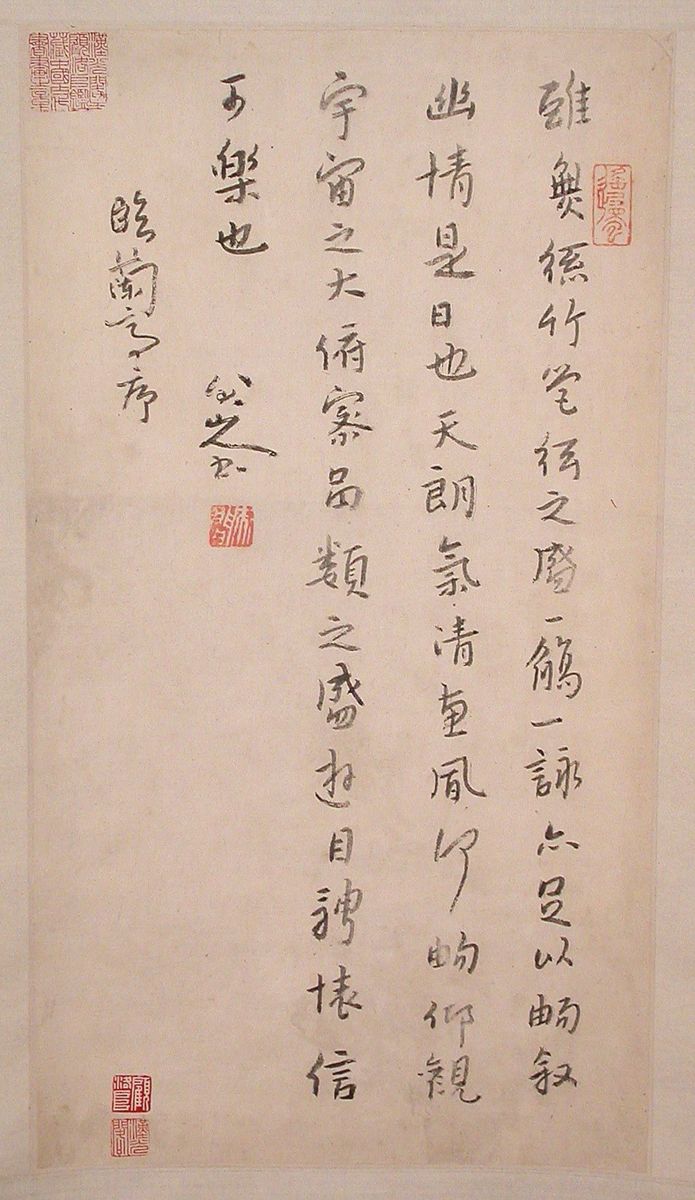 雖無絲竹管絃之盛一觴一詠亦足以暢叙
幽情是日也天朗氣清惠風和暢仰觀
宇宙之大俯察品類之盛遊目騁懷信
可樂也
八大山人書
臨蘭亭序
顧洛阜
漢光閣